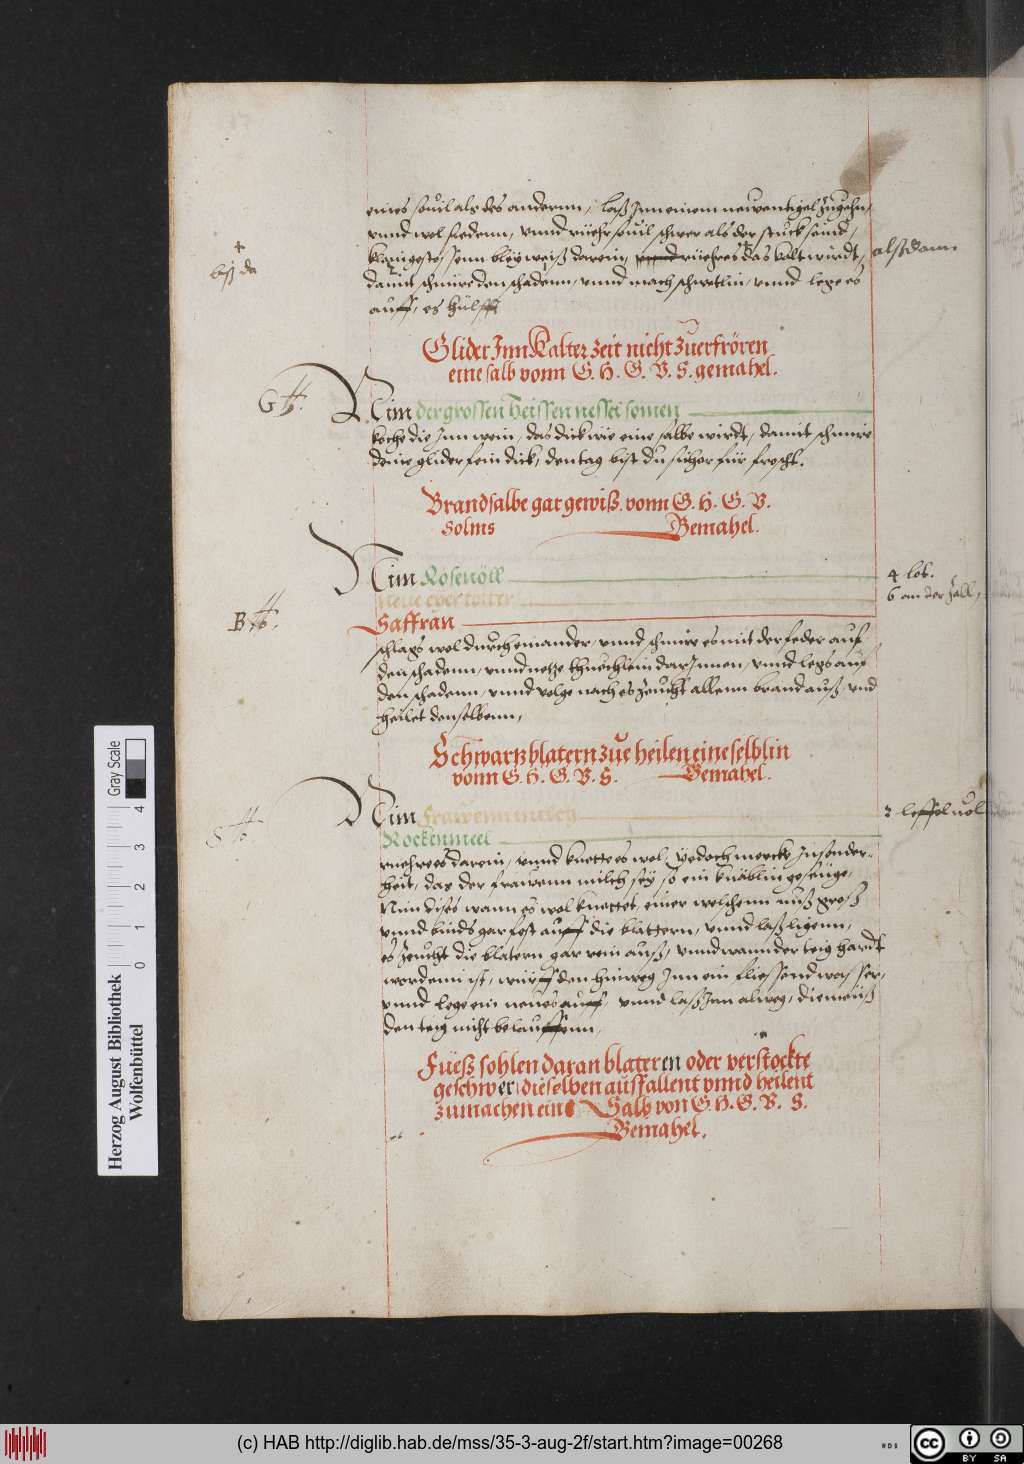 eines souil als des andernn, laß Jnn einem newen tigel zugehn,
vnnd wol siedenn, vnnd rüehr souil schwer als der stück seind,
klain gestosenn bleyweiß darein, rüehres das kalt wirdt, alßdann
biß da
damit schmire den schadenn, vnnd mach schwetlin, vnnd lege es
auff, es hülfft
Glider Jnn Kalter zeit nicht zuerfrören
eine salb vonn G. H. G. V. S. gemahel.
G
Nim der grossen heissen nessel somen
koche die Jnn wein, das dick wie eine salbe wirdt, damit schmire
deine glider fein dick, den tag bist du sicher für frost.
Brandsalbe gar gewiß vonn G. H. G. V.
Solms Gemahel.
Nim Rosenöll 4 lot.
Neue eyer totter 6 an der Zall,
B
Saffran
schlags wol durcheinander, vnnd schmire es mit der feder auf
den schadenn, vnnd netze thuechlein darJnnen, vnnd legs auf
den schadenn, vnnd volge nach es zeucht allenn brand auß, vnd
heilet denselbenn,
Schwartzblatern zue heilen eine selblin
vonn G. H. G. V. S. Gemahel.
S
Nim Frawenn milch 2 leffel vol
Rockenmeel
ruehre es darein, vnnd knette es wol, yedoch mercke Jnsonder-
heit, das der frawenn milch sey so ein knäblin geseüge,
Nim dises wann es wol knettet, einer welschenn nuß groß
vnnd binds gar fest auff die blattern, vnnd laß ligenn,
es zeucht die blatern gar rein auß, vnnd wann der teig hardt
wordenn ist, würff den hinweg Jnn ein fliessend wasser,
vnnd lege ein neues auff, vnnd laß Jnn alweg, die meüß
den teig nicht belauffenn,
Füeß sohlen daran blateren oder verstockte
geschwer, dieselben auffallent vnnd heilent
zumachen eine Salb von G. H. G. V. S.
Gemahel.
Herzog August Bibliothek
Wolfenbüttel
0 1 2 3 4
Gray Scale
(c) HAB http://diglib.hab.de/mss/35-3-aug-2f/start.htm?image=00268
cc BY SA